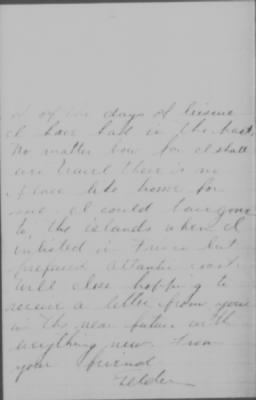 days of leisure
I have had in the past.
No matter how far I shall
ever travel there is no
place like home for
me. I could have gone
to the islands when I
inlisted in but
prefered atlantic coast.
Will close hopping to
receive a letter from you
in the near future with
everything new. From
your friend